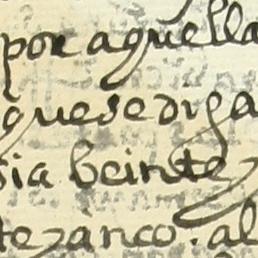 por aquella
que se diga
sia beinte
te zanco. al